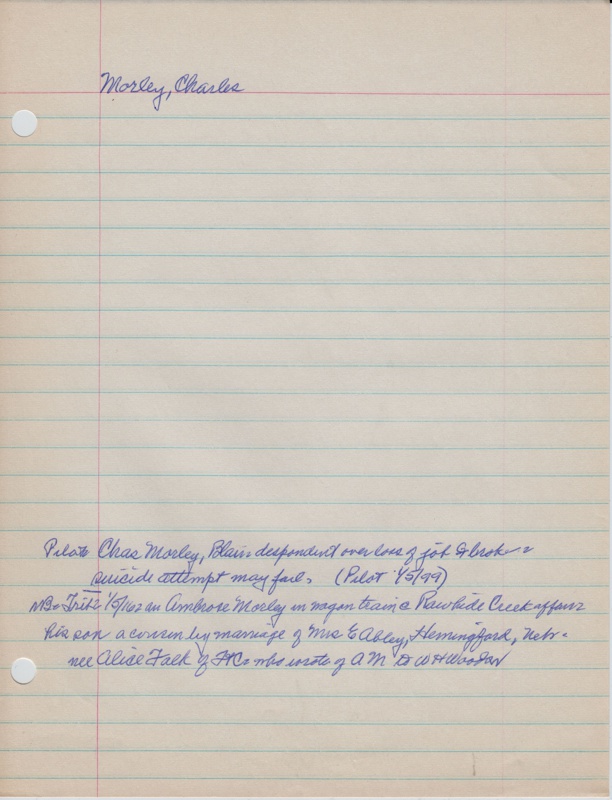 Morley, Charles
Pilot Chas Morley, Blair despondent over loss of job & broke
suicide attempt may fail. (Pilot 1/5/99)
1/5/162 an Ambrose Morley in wagon train Rawhide Creek affair
his son a cousin by marriage of Mrs E Abley, Hemingford, Nebr.
nee Alice Falk of who wrote of AM W H Woods